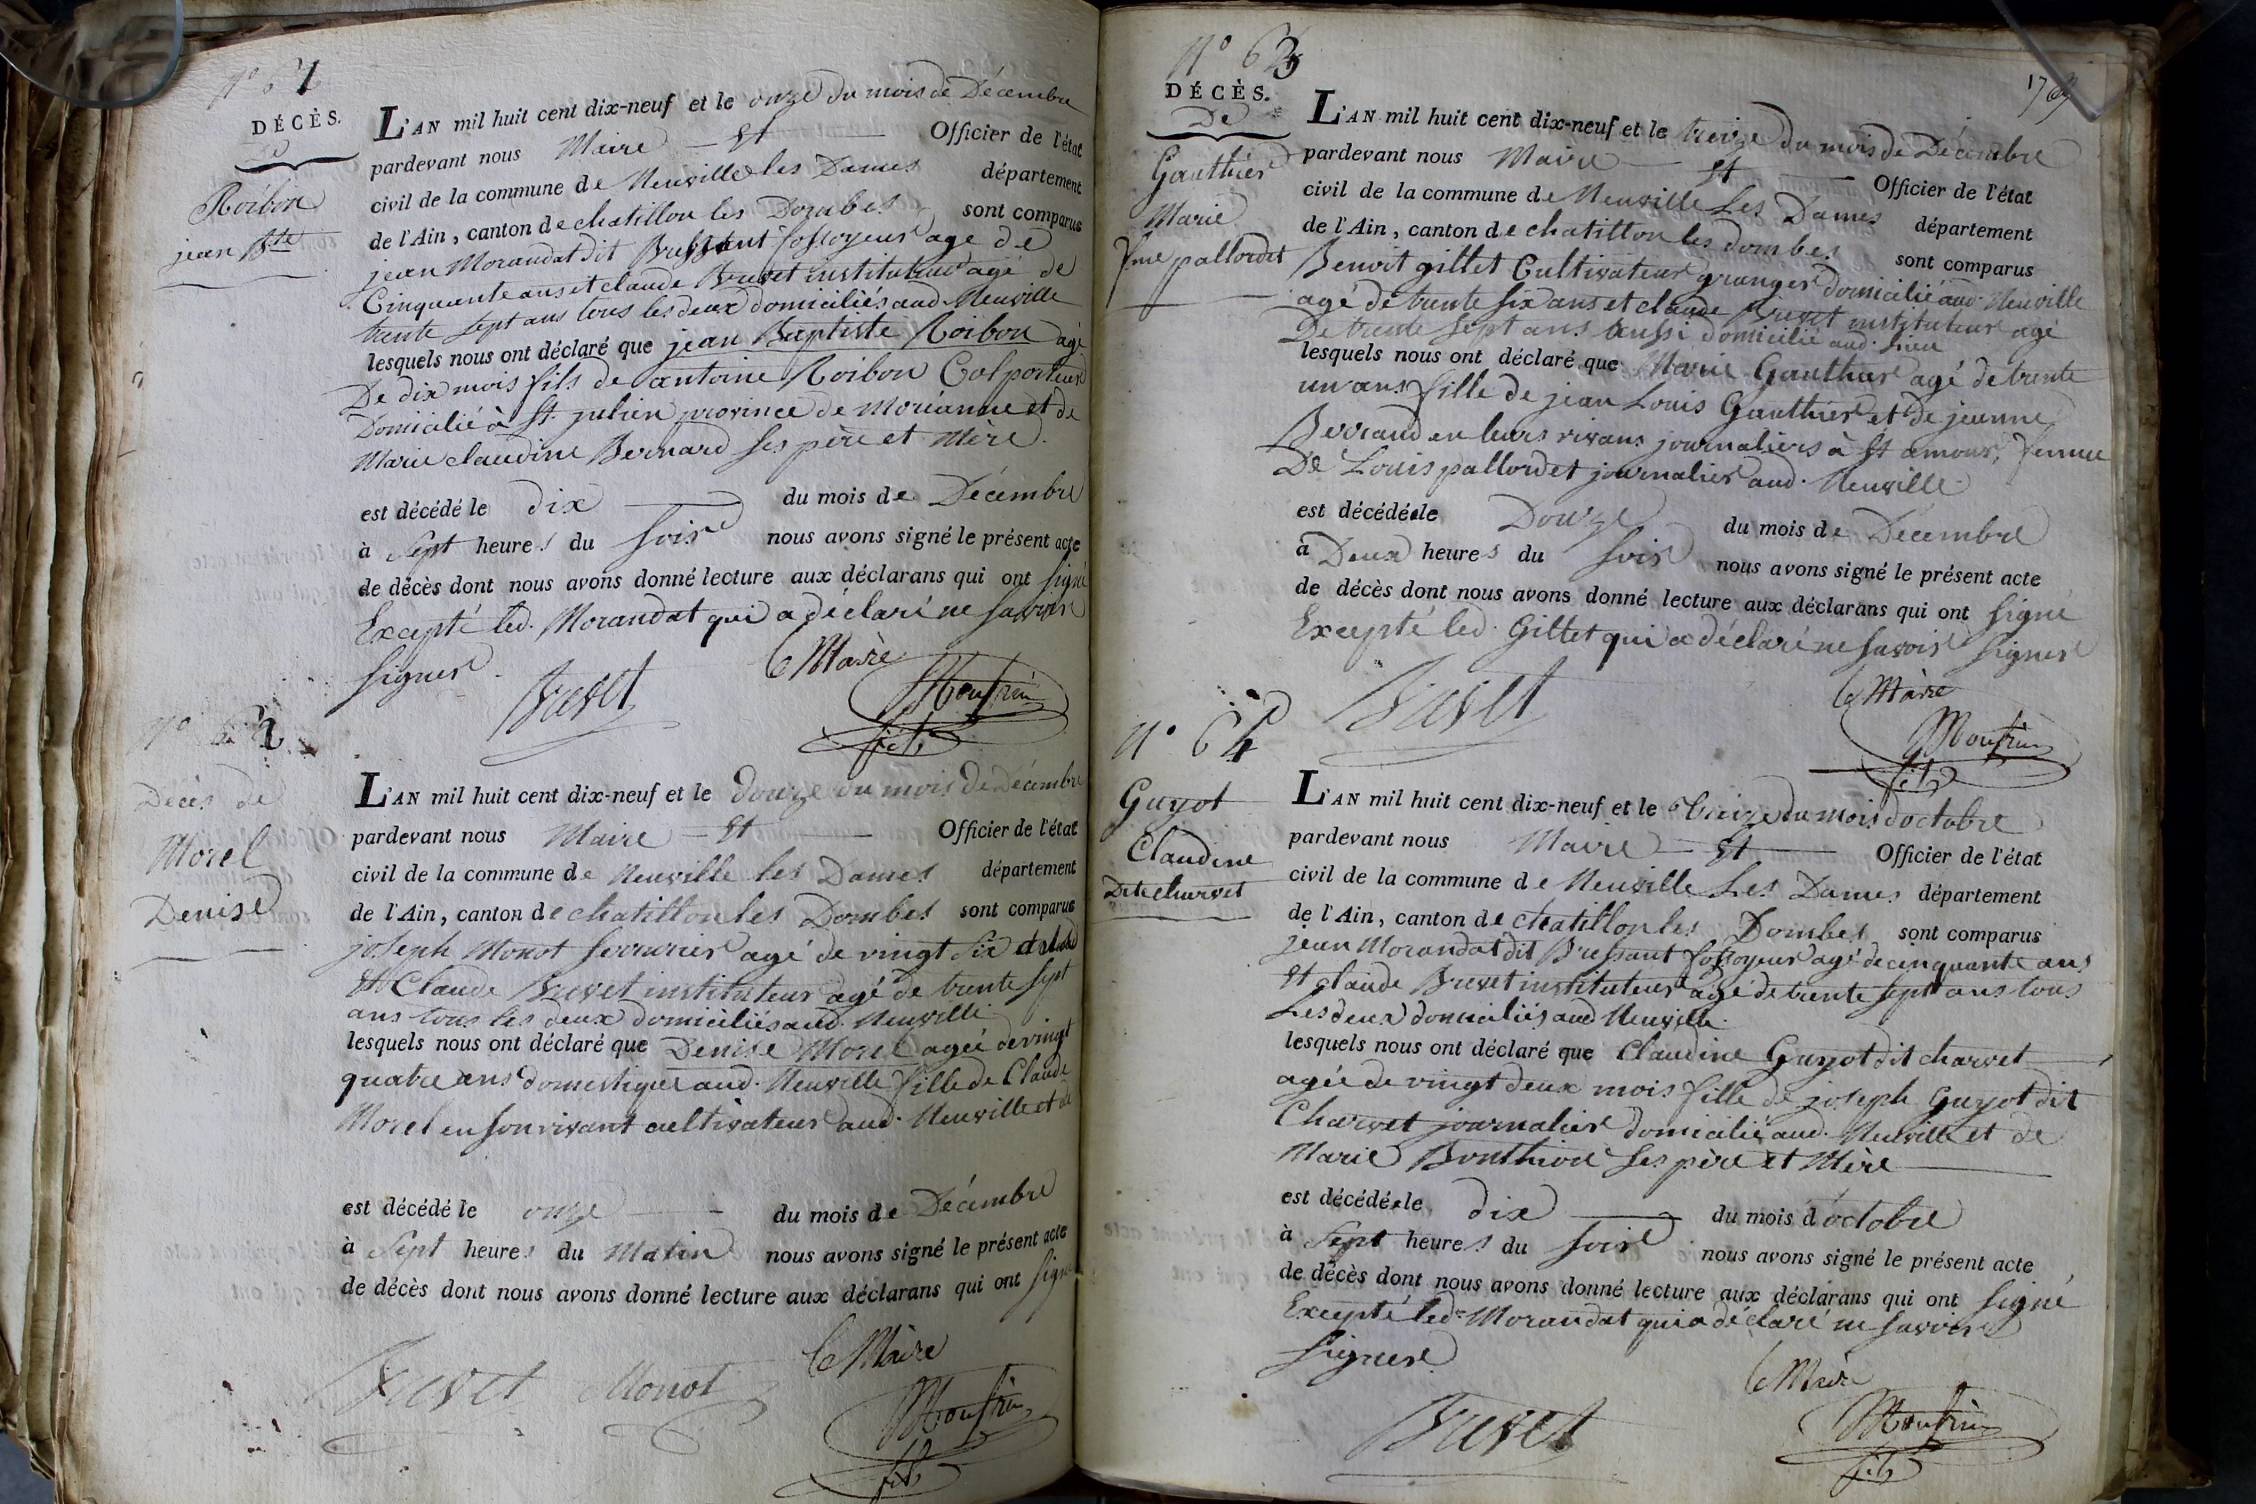 N° 61
DÉCÈS.
De
Roibon
jean Bte
L'AN mil huit cent dix-neuf et le onze du mois de Décembre
pardevant nous Maire et Officier de l'état
civil de la commune de Neuville les Dames département
de l'Ain, canton de chatillon les Dombes sont comparus
jean Morandat dit Bressant fossoyeur agé de
Cinquante ans et claude Brevet instituteur agé de
trente sept ans tous les deux domiciliés aud. Neuville
lesquels nous ont déclaré que jean Baptiste Roibon agé
De dix mois fils de antoine Roibon Colporteur
Domicilié à St. julien province de Morianne et de
Marie claudine Bernard ses père et Mère.
est décédé le dix du mois de Décembre
à Sept heures du soir nous avons signé le présent acte
de décès dont nous avons donné lecture aux déclarans qui ont signé
Excepté led. Morandat qui a déclaré ne savoir
signer.
le Maire
Brevet
fils
N° 62
Décès de
Morel
Denise
L'AN mil huit cent dix-neuf et le douze du mois de Décembre
pardevant nous Maire et Officier de l'état
civil de la commune de Neuville les Dames département
de l'Ain, canton de chatillon les Dombes sont comparus
joseph Monot serrurier agé de vingt six
et Claude Brevet instituteur agé de trente sept
ans tous les deux domiciliés aud. Neuville
lesquels nous ont déclaré que Denise Morel agée de vingt
quatre ans domestique aud. Neuville fille de Claude
Morel en son vivant cultivateur aud. Neuville et de
est décédé le onze du mois de Décembre
à Sept heures du Matin nous avons signé le présent acte
de décès dont nous avons donné lecture aux déclarans qui ont signé
le Maire
Brevet Monot
fils
N° 63
179
DÉCÈS.
De
Gauthier
Marie
fme pallordet
L'AN mil huit cent dix-neuf et le treize du mois de Décembre
pardevant nous Maire et Officier de l'état
civil de la commune de Neuville Les Dames département
de l'Ain, canton de chatillon les dombes sont comparus
Benoit gillet Cultivateur granger domicilié aud. Neuville
agé de trente six ans et claude Brevet instituteur agé
De trente sept ans aussi domicilié aud. lieu
lesquels nous ont déclaré que Marie Gauthier agé de trente
un ans fille de jean Louis Gauthier et de jeanne
Berraud en leurs vivans journaliers à St amour, femme
De Louis pallordet journalier aud. Neuville
est décédée le Douze du mois de Décembre
à Deux heures du soir nous avons signé le présent acte
de décès dont nous avons donné lecture aux déclarans qui ont signé
Excepté led. Gillet qui a déclaré ne savoir signer
le Maire
Brevet
fils
N° 64
Guyot
Claudine
Dite charvet
L'AN mil huit cent dix-neuf et le treize du mois d'octobre
pardevant nous Maire et Officier de l'état
civil de la commune de Neuville Les Dames département
de l'Ain, canton de chatillon les Dombes sont comparus
jean Morandat dit Bressant fossoyeur agé de cinquante ans
et claude Brevet instituteur agé de trente sept ans tous
Les deux domiciliés aud Neuville.
lesquels nous ont déclaré que Claudine Guyot dit charvet
agée de vingt deux mois fille de joseph Guyot dit
Charvet journalier domicilié aud. Neuville et de
Marie Bonthion ses père et Mère
est décédée le dix du mois d'octobre
à Sept heures du soir nous avons signé le présent acte
de décès dont nous avons donné lecture aux déclarans qui ont signé
Excepté led. Morandat qui a déclaré ne savoir
signer
le Maire
Brevet
fils